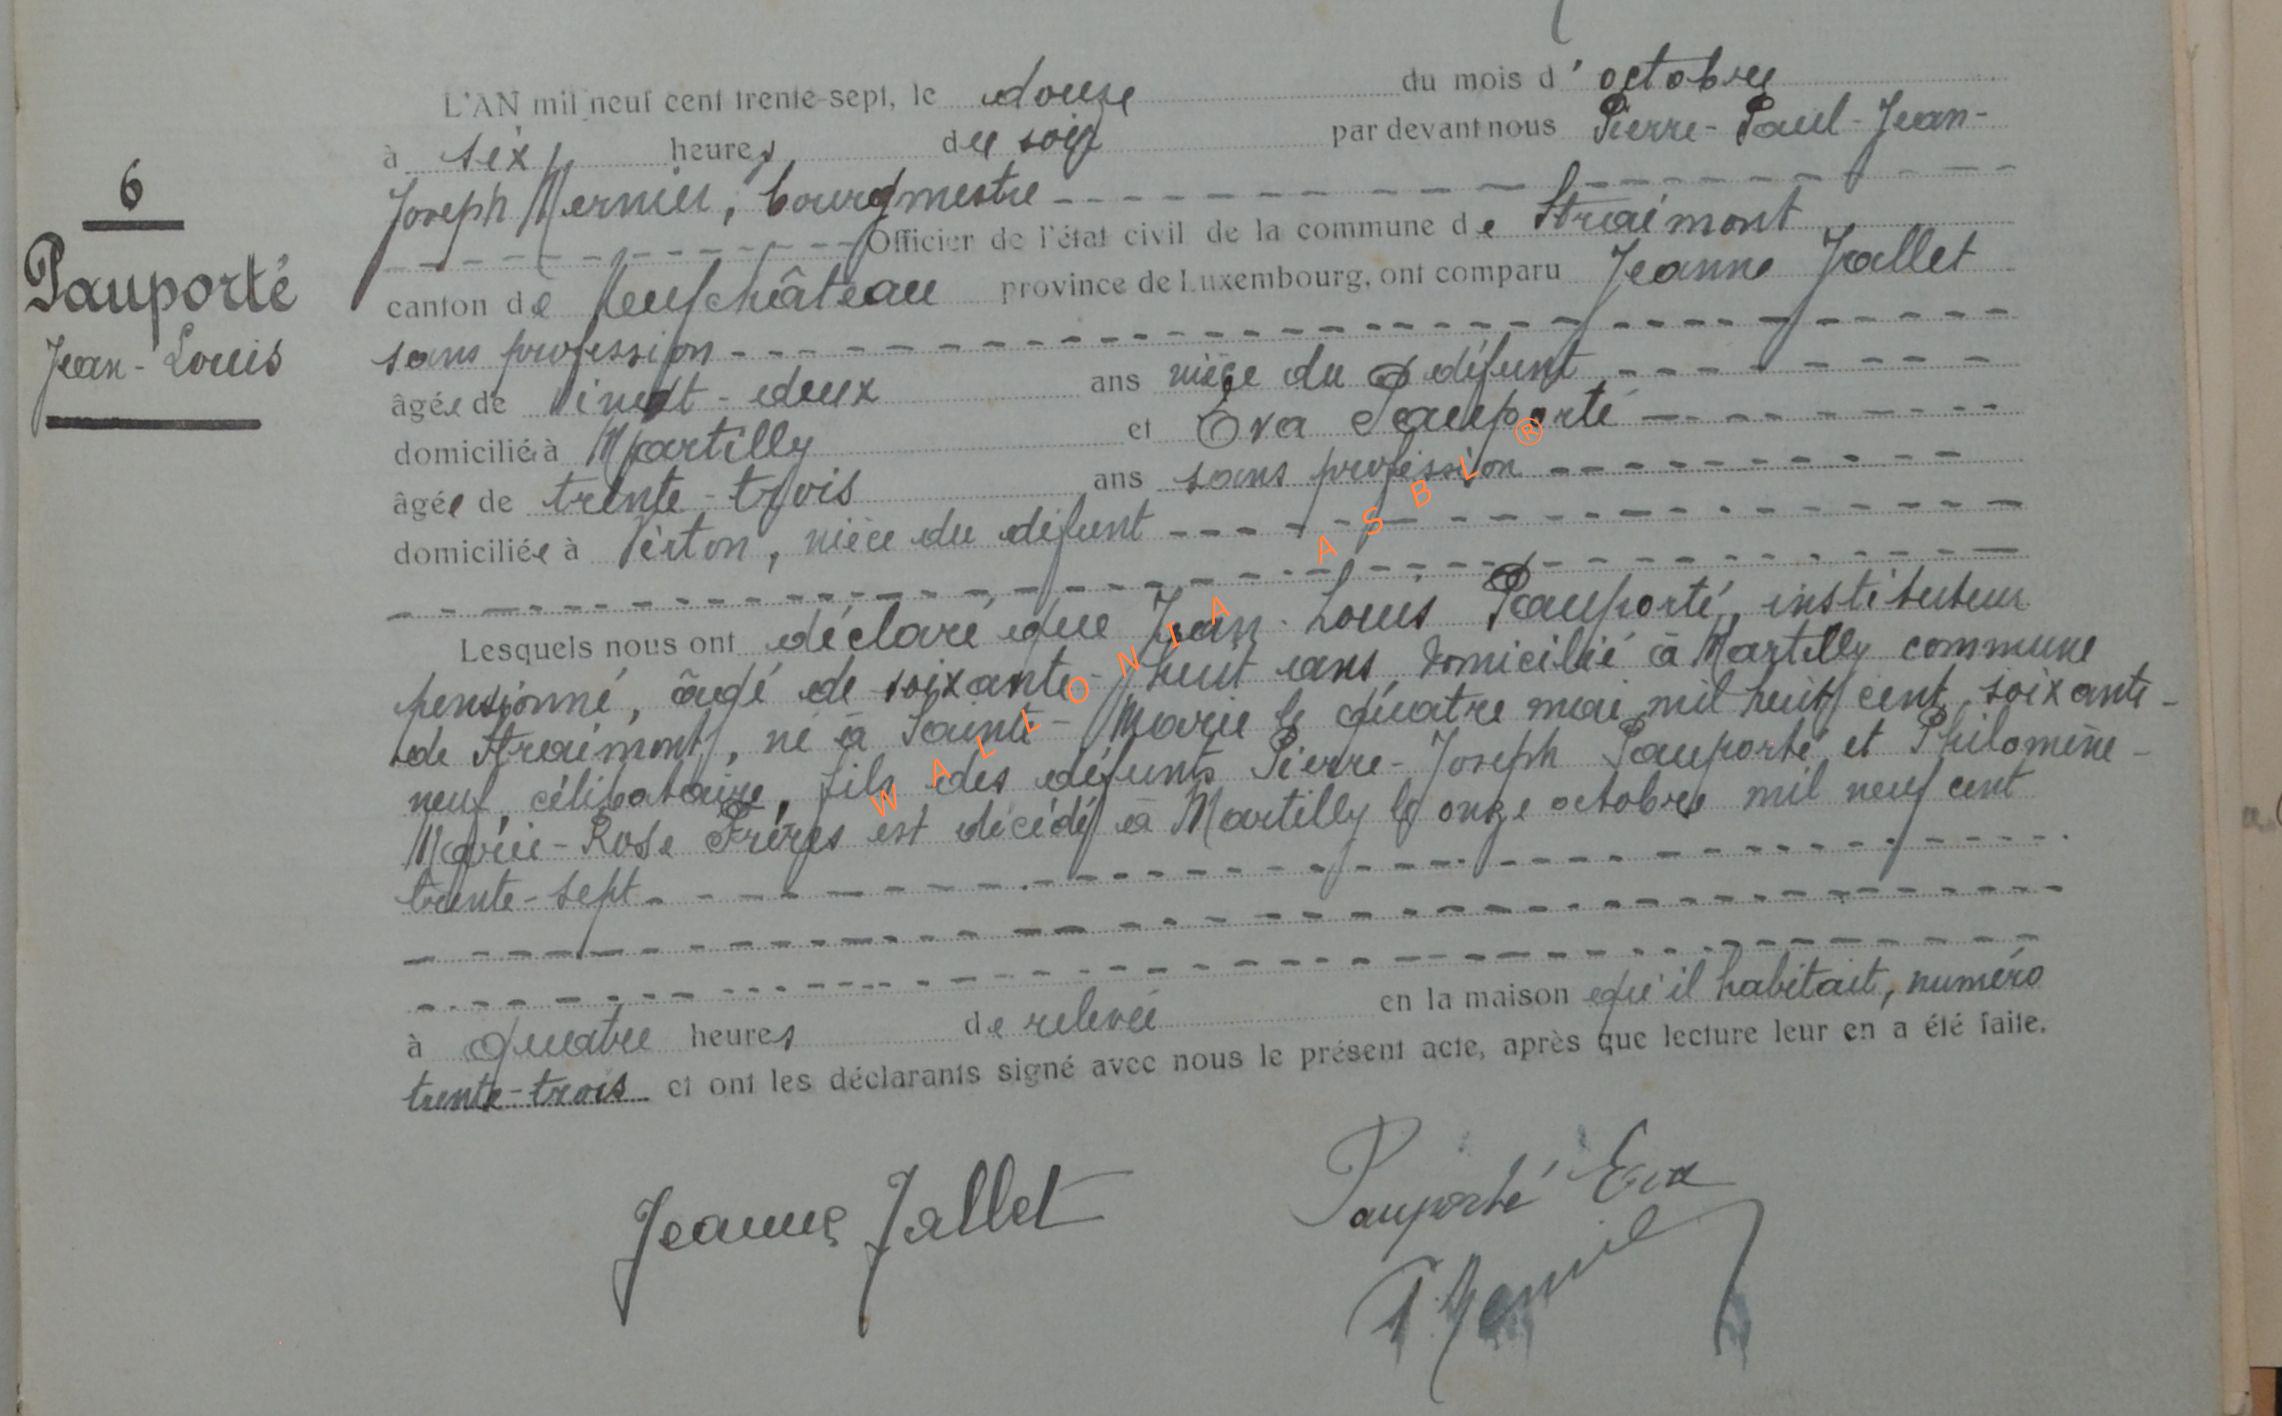 6
Pauporté
Jean-Louis
L'AN mil neuf cent trente-sept, le douze du mois d'octobre
à six heures du soir par devant nous Pierre-Paul-Jean-
Joseph Mernier, bourgmestre
Officier de l'état civil de la commune de Straimont
canton de Neufchâteau province de Luxembourg, ont comparu Jeanne Jallet
sans profession
âgée de vingt-deux ans nièce du défunt
domiciliée à Martilly et Eva Pauporté
âgée de trente-trois ans sans profession
domiciliée à Virton, nièce du défunt
Lesquels nous ont déclaré que Jean-Louis Pauporté, instituteur
pensionné, âgé de soixante-huit ans, domicilié à Martilly commune
de Straimont, né à Sainte-Marie le quatre mai mil huit cent soixante-
neuf, célibataire, fils des défunts Pierre-Joseph Pauporté et Philomène-
Marie-Rose Frérès est décédé à Martilly le onze octobre mil neuf cent
trente-sept
à quatre heures de relevée en la maison qu'il habitait, numéro
trente-trois et ont les déclarants signé avec nous le présent acte, après que lecture leur en a été faite.
Jeanne Jallet
Pauporté Eva
WALLONIA ASBL ®